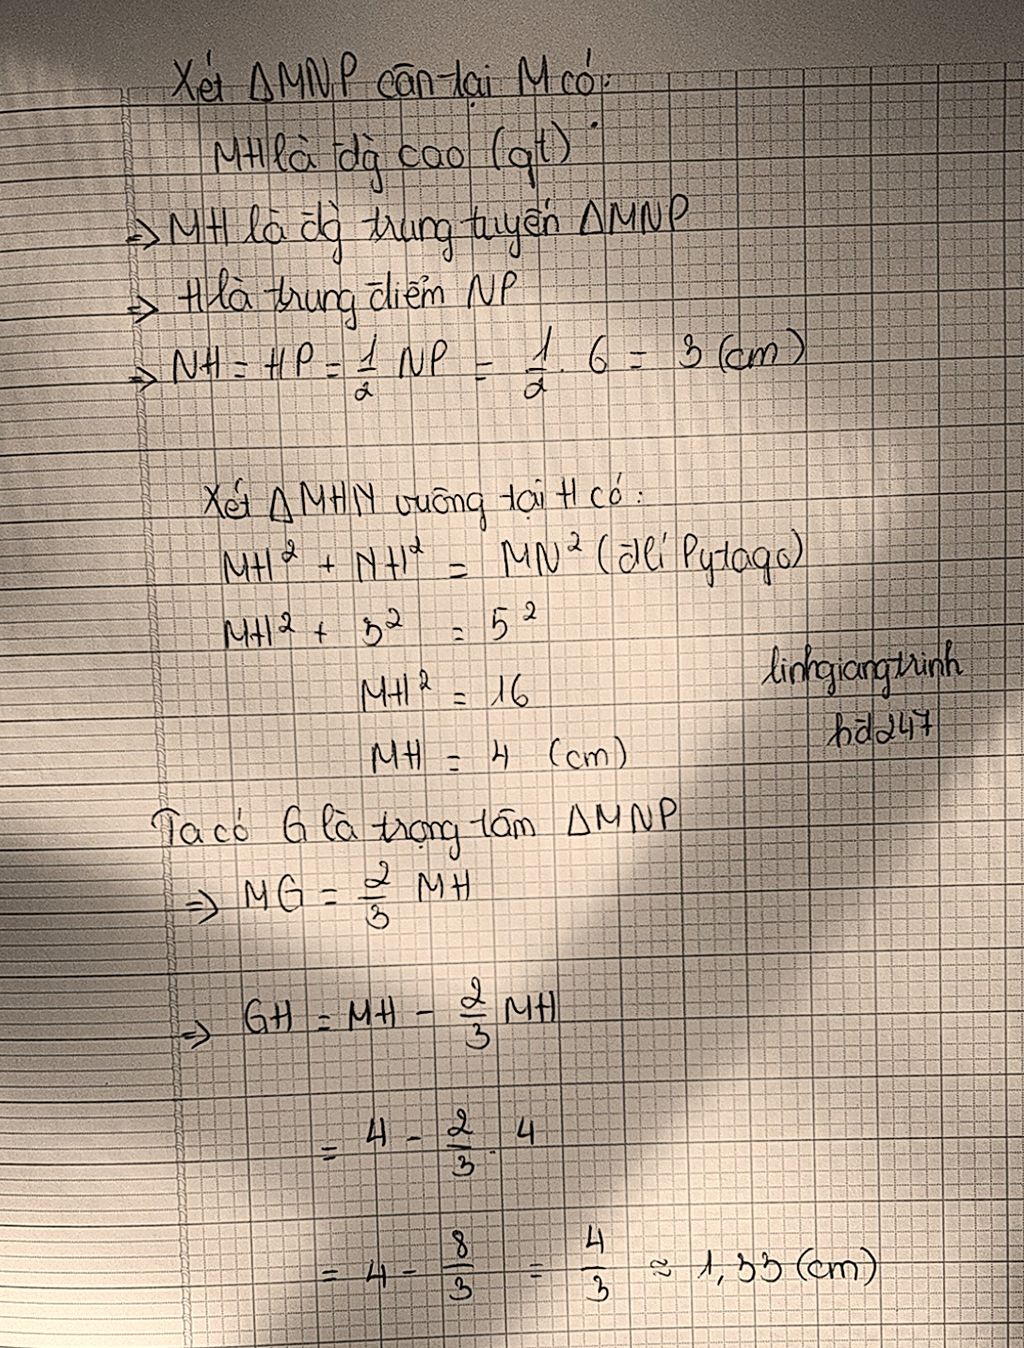 Xét ΔMNP cân tại M có:
MH là đg̀ cao (gt)
⇒ MH là đg̀ trung tuyến ΔMNP
⇒ H là trung điểm NP
⇒ NH = HP = 1/2 NP = 1/2 . 6 = 3 (cm)
Xét ΔMHN vuông tại H có:
MH² + NH² = MN² (đlí Pytago)
MH² + 3² = 5²
MH² = 16
MH = 4 (cm)
linhgiangtrinh
hd247
Ta có G là trọng tâm ΔMNP
⇒ MG = 2/3 MH
⇒ GH = MH - 2/3 MH
= 4 - 2/3 . 4
= 4 - 8/3 = 4/3 ≈ 1,33 (cm)